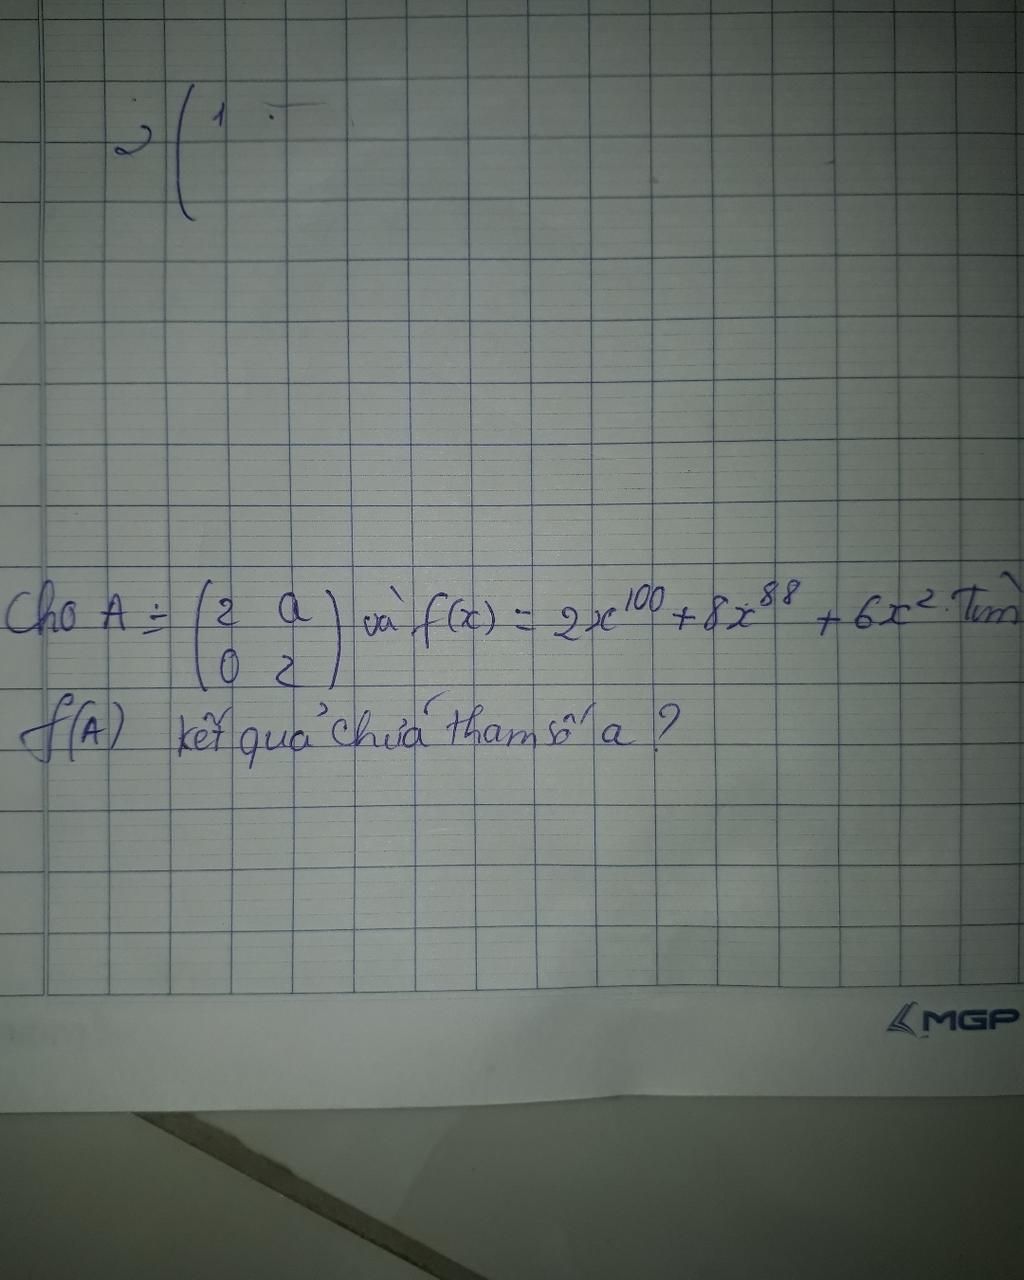 2 ( 1
Cho A = (2 a) và f(x) = 2x^100 + 8x^88 + 6x^2. Tìm
(0 2)
f(A) kết quả chứa tham số a?
MGP